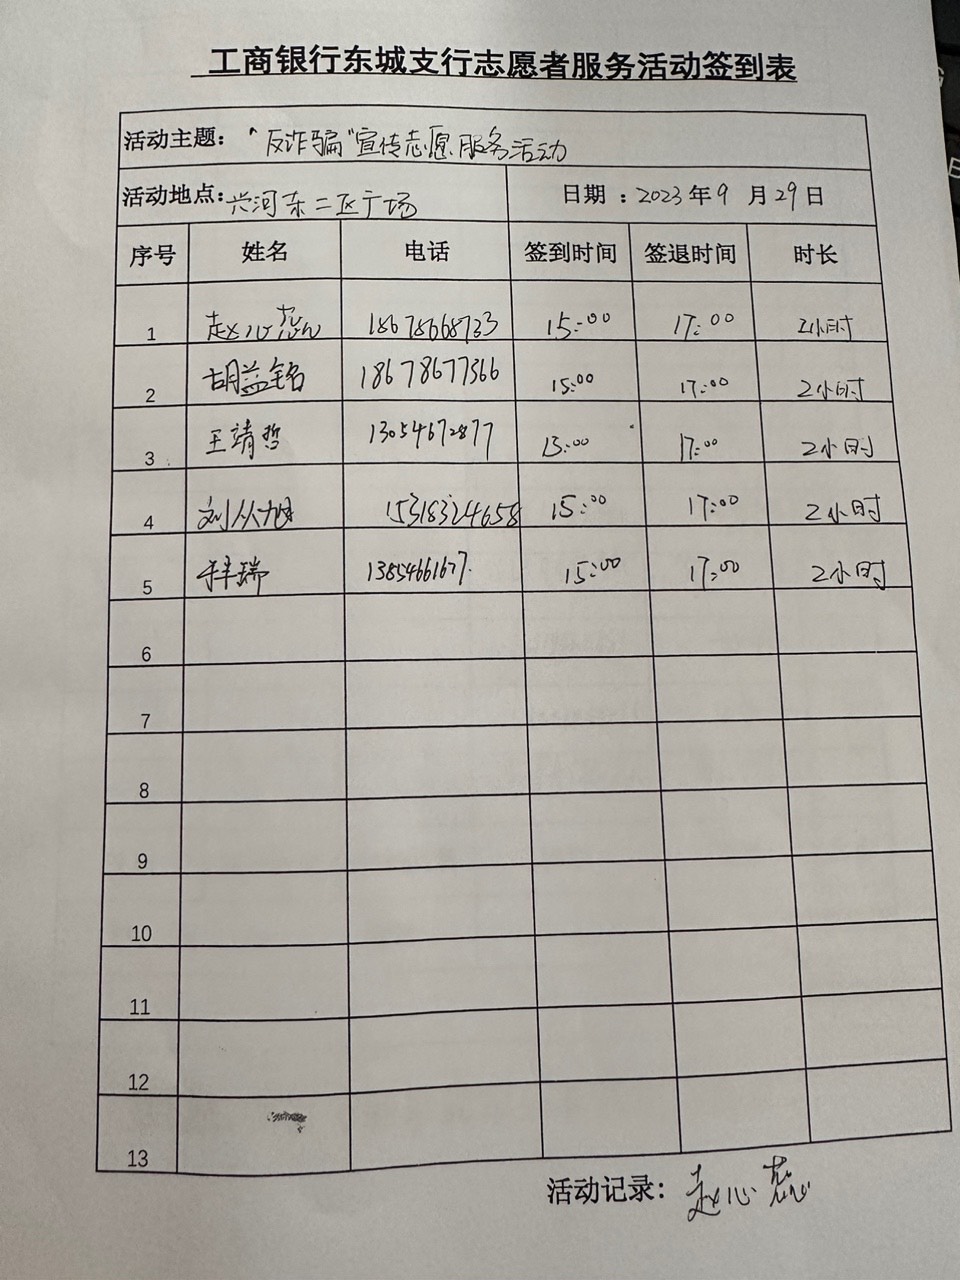 工商银行东城支行志愿者服务活动签到表
活动主题： “反诈骗”宣传志愿服务活动
活动地点：兴河东二区广场 日期：2023年9月29日
序号 姓名 电话 签到时间 签退时间 时长
1 赵心蕊 18678668733 15:00 17:00 2小时
2 胡益铭 18678677366 15:00 17:00 2小时
3 王靖哲 13054672877 15:00 17:00 2小时
4 刘从旭 15318324658 15:00 17:00 2小时
5 瑞 13854661677. 15:00 17:00 2小时
6
7
8
9
10
11
12
13
活动记录：赵心蕊